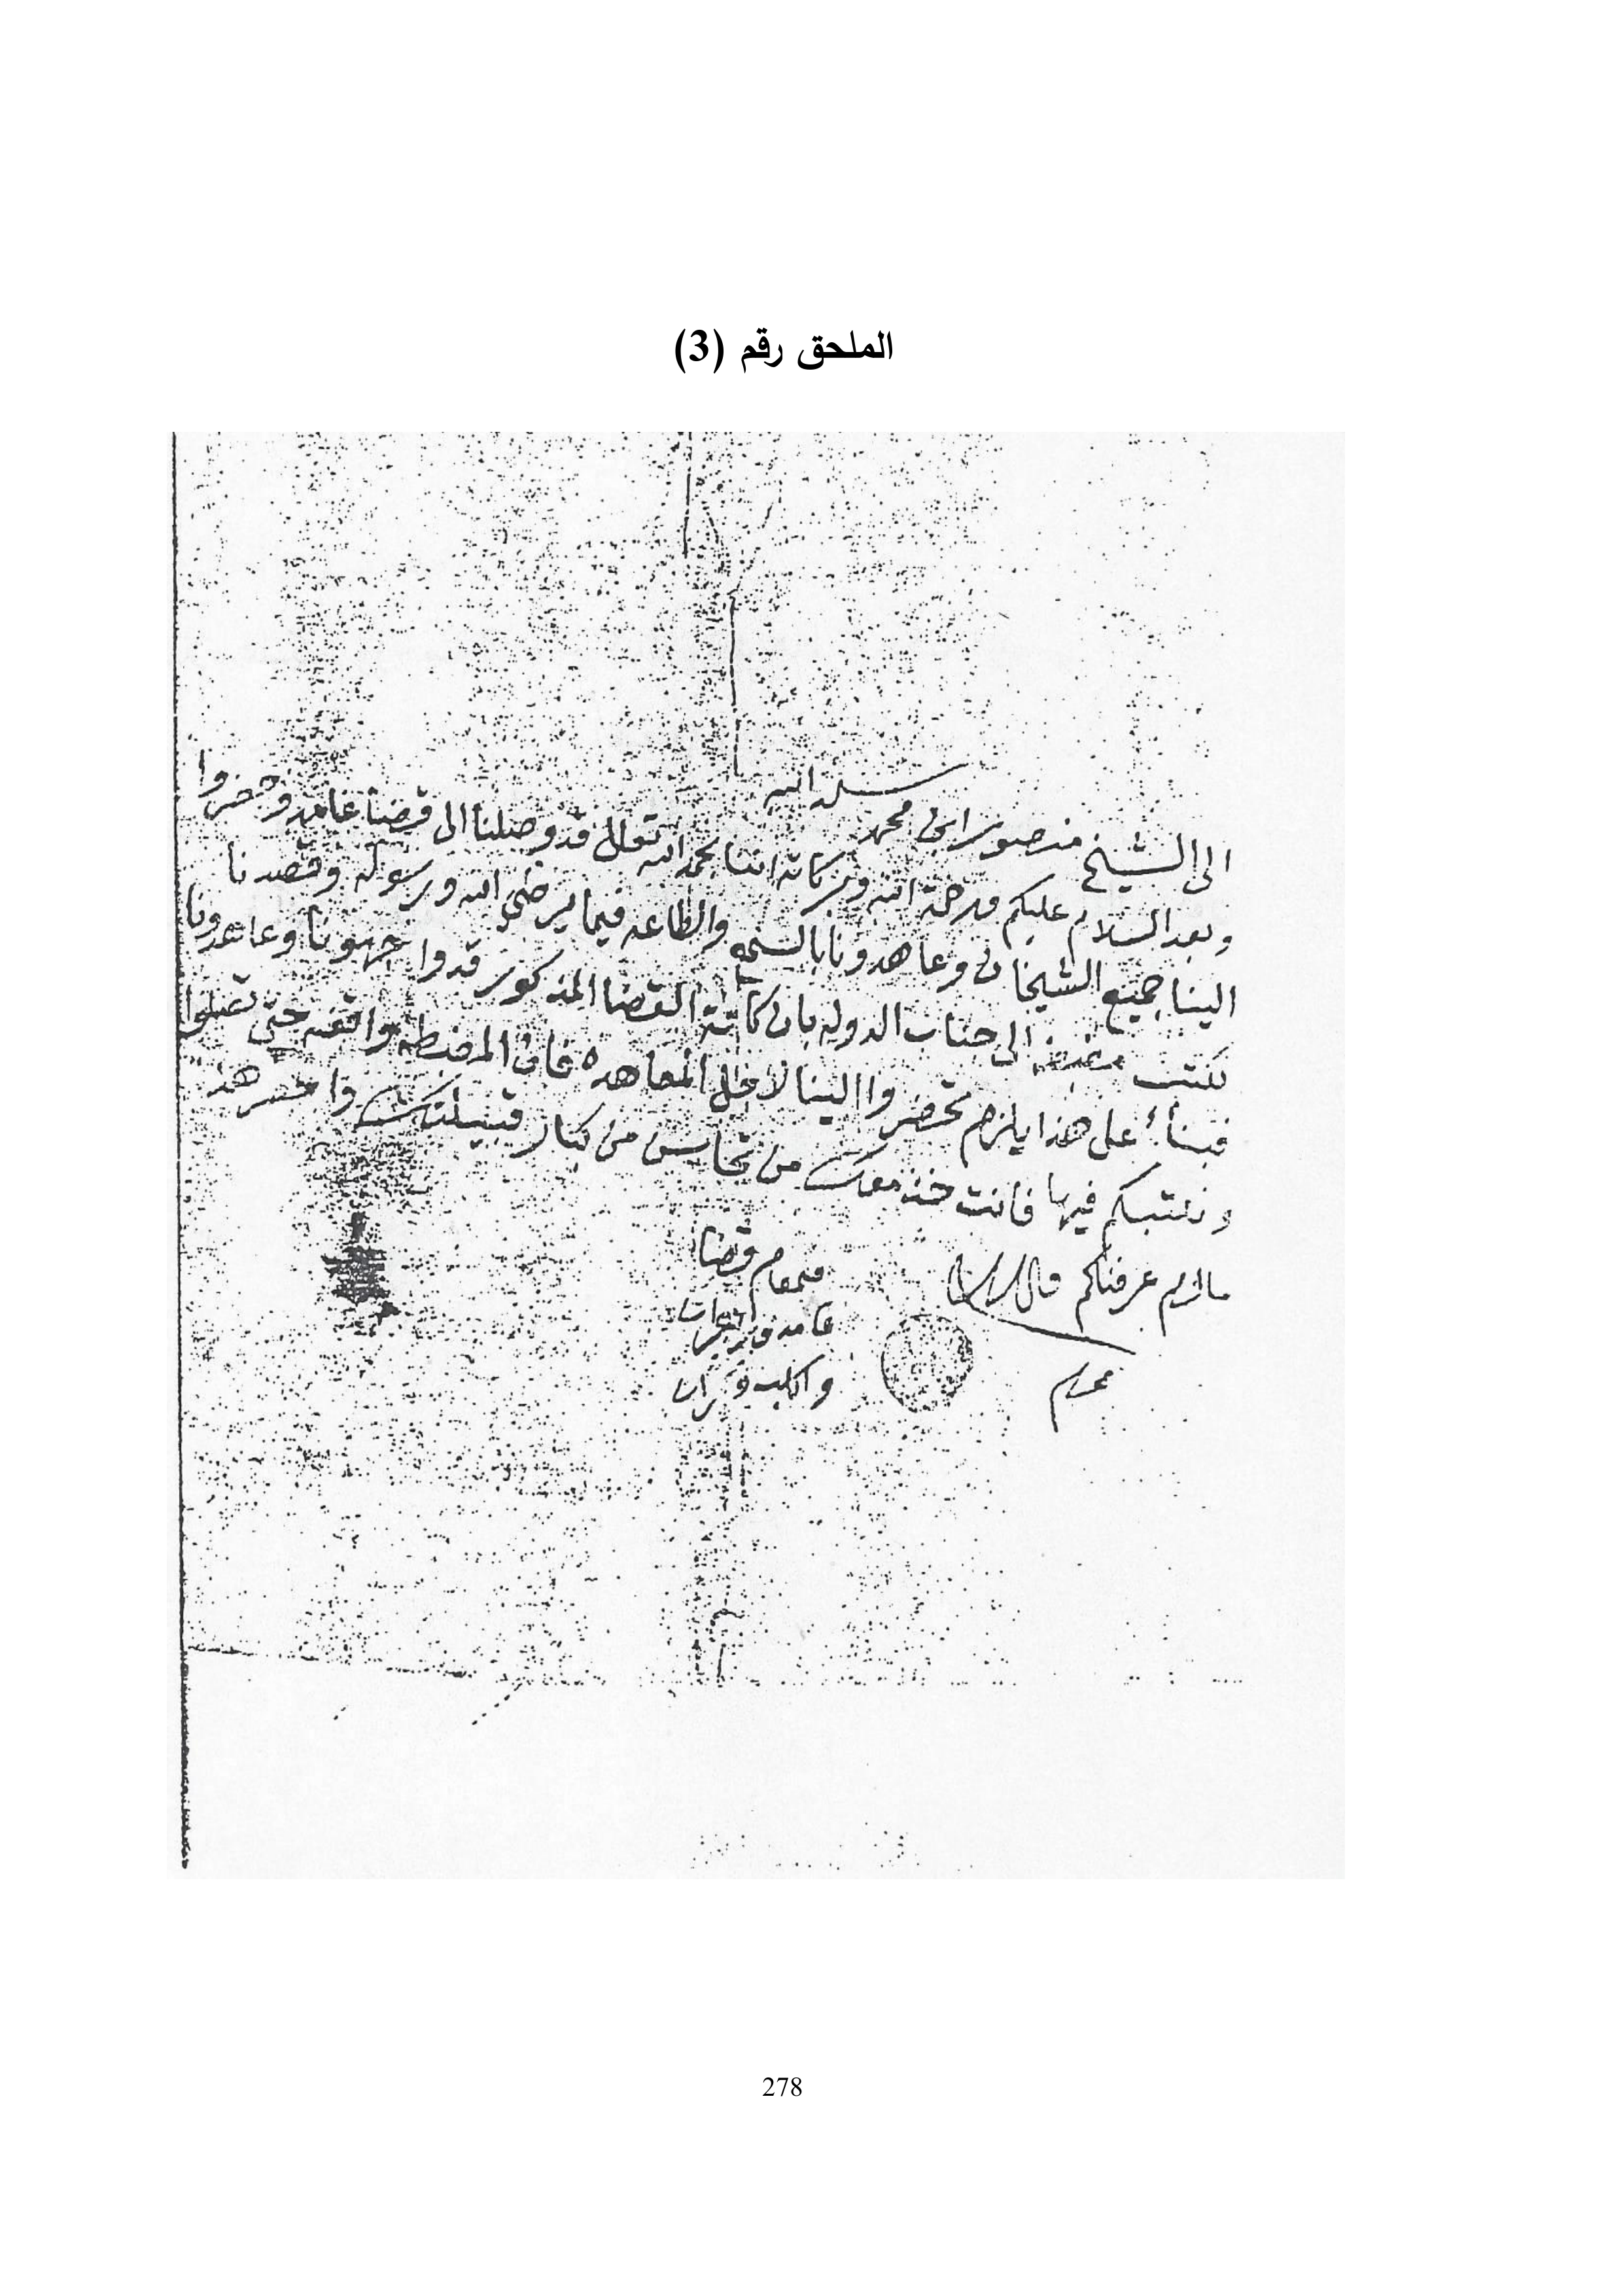 الملحق رقم (3)
الى الشيخ منصور ابن محمد سلمه الله
وبعد السلام عليكم ورحمة الله وبركاته اننا بحمد الله تعالى قد وصلنا الى قضا غامد وحضروا
الينا جميع الشيخان وعاهدونا بالسمع والطاعه فيما يرضي الله ورسوله وقصدنا
نكتب مضبطه الى جناب الدوله بان كافة القضا المذكور قدوا جهونا وعاهدونا
فبناءً على هذا يلزم تحضروا الينا لاجل المعاهده فان المضبطه واقفه حتى تصلوا
ونكتبكم فيها فانت خذ معك من كبار قبيلتك واحضر هذا
مالزم عرفناكم والسلام
قيمقام قضا
غامد وزهران
278